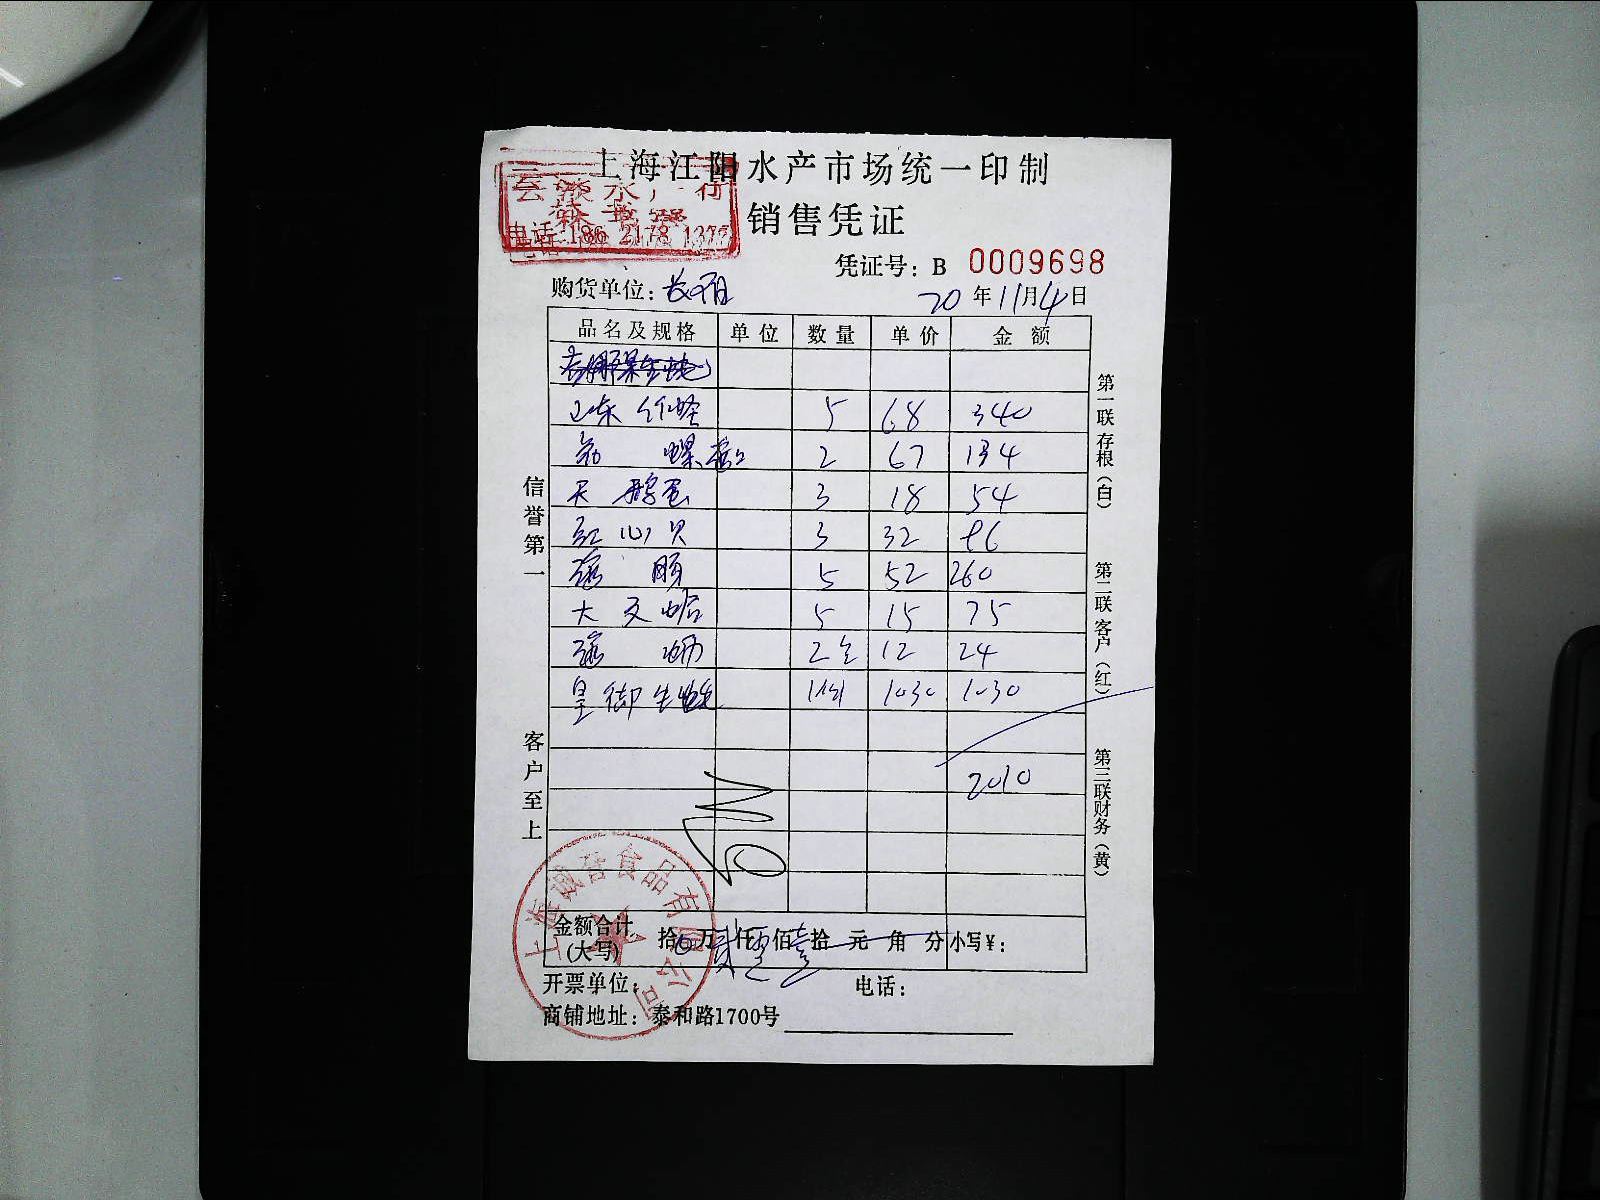 上海江阳水产市场统一印制
销售凭证
电话:186 2178 1377
凭证号：B 0009698
购货单位：
20年11月4日
品名及规格 单位 数量 单价 金额
山东竹蛏 5 68 340
螺 2 67 134
天鹅蛋 3 18 54
红心贝 3 32 96
海肠 5 52 260
大文蛤 5 15 75
海蛎 2 12 24
皇御生蚝 1 1030 1030
2010
信誉第一
客户至上
第一联存根（白）
第二联客户（红）
第三联财务（黄）
上海诚誉食品有限公司
金额合计(大写) 拾万贰仟零佰壹拾元角分 小写¥：
开票单位：
电话：
商铺地址：泰和路1700号